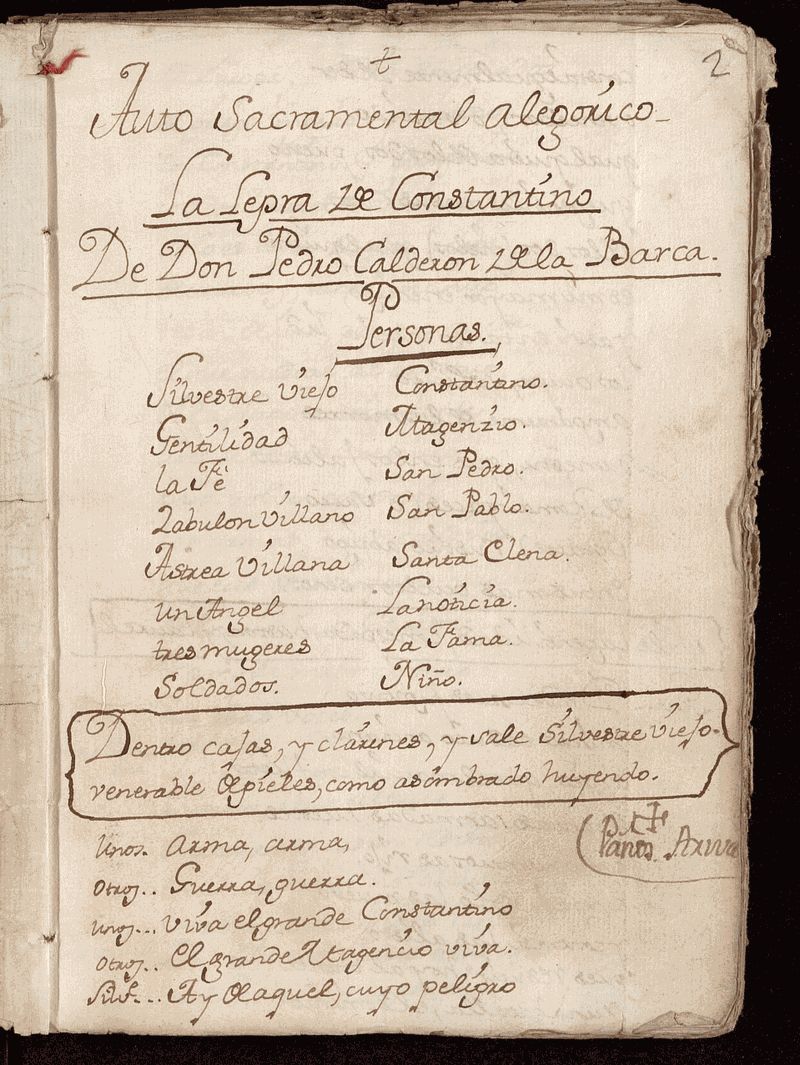 2
Auto Sacramental alegorico
La Lepra de Constantino
De Don Pedro Calderon de la Barca.
Personas.
Silvestre viejo Constantino.
Gentilidad Magenzio.
la Fé San Pedro.
Zabulon Villano San Pablo.
Astrea Villana Santa Elena.
un Angel La noticia.
tres mugeres La Fama.
Soldados. Niño.
Dentro cajas, y clarines, y sale Silvestre viejo
venerable de pieles, como asombrado huyendo.
Unos. Arma, arma,
Otros.. Guerra, guerra.
unos... viva el grande Constantino
otros.. El grande Magencio viva.
Silv.... Ay de aquel, cuyo peligro